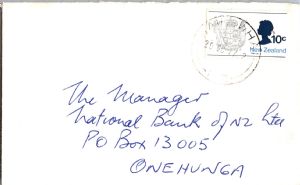 10c
New Zealand
The Manager
National Bank of NZ Ltd
PO Box 13005
ONEHUNGA